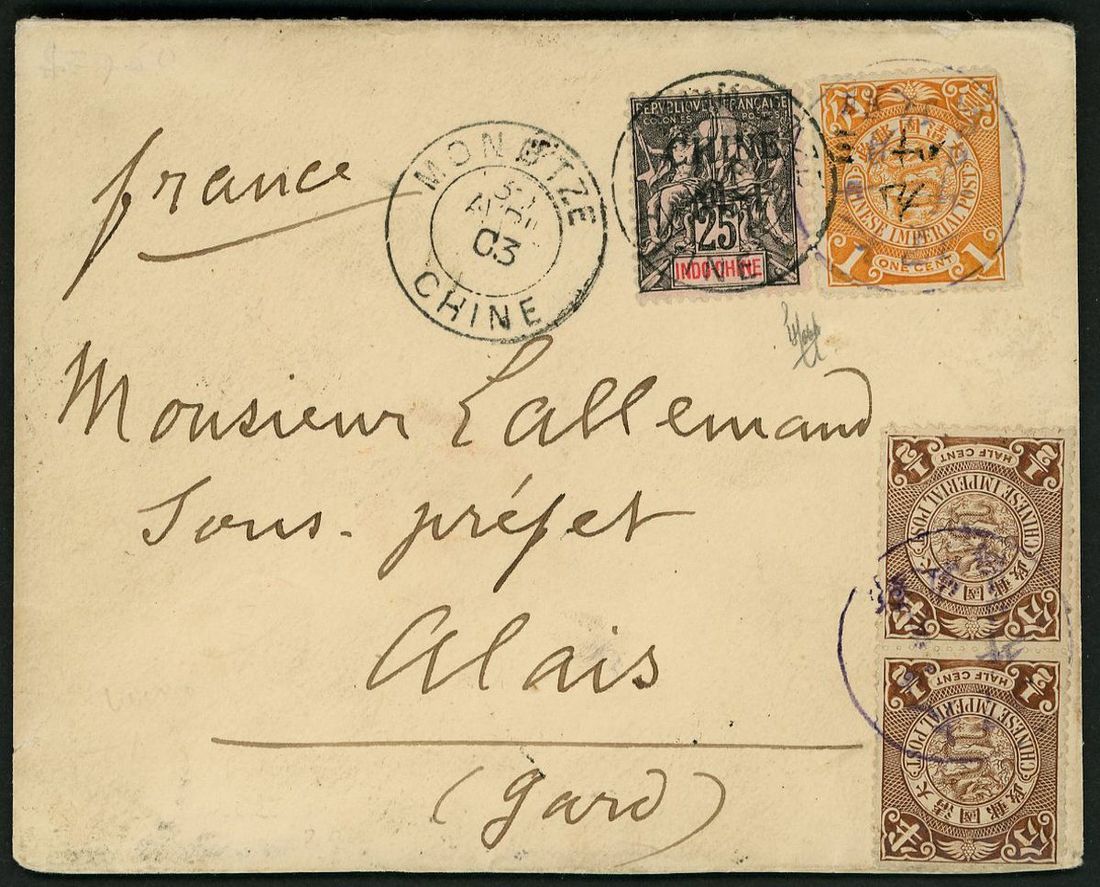 france
MONGTZE
AVRIL
03
CHINE
REPVBLIQVE FRANÇAISE
COLONIES POSTES
CHINE
25
INDO-CHINE
大清國郵政
CHINESE IMPERIAL POST
1 ONE CENT 1
Monsieur Lallemand
Sous-préfet
Alais
(Gard)
1/2 HALF CENT 1/2
CHINESE IMPERIAL POST
大清國郵政
1/2 HALF CENT 1/2
CHINESE IMPERIAL POST
大清國郵政